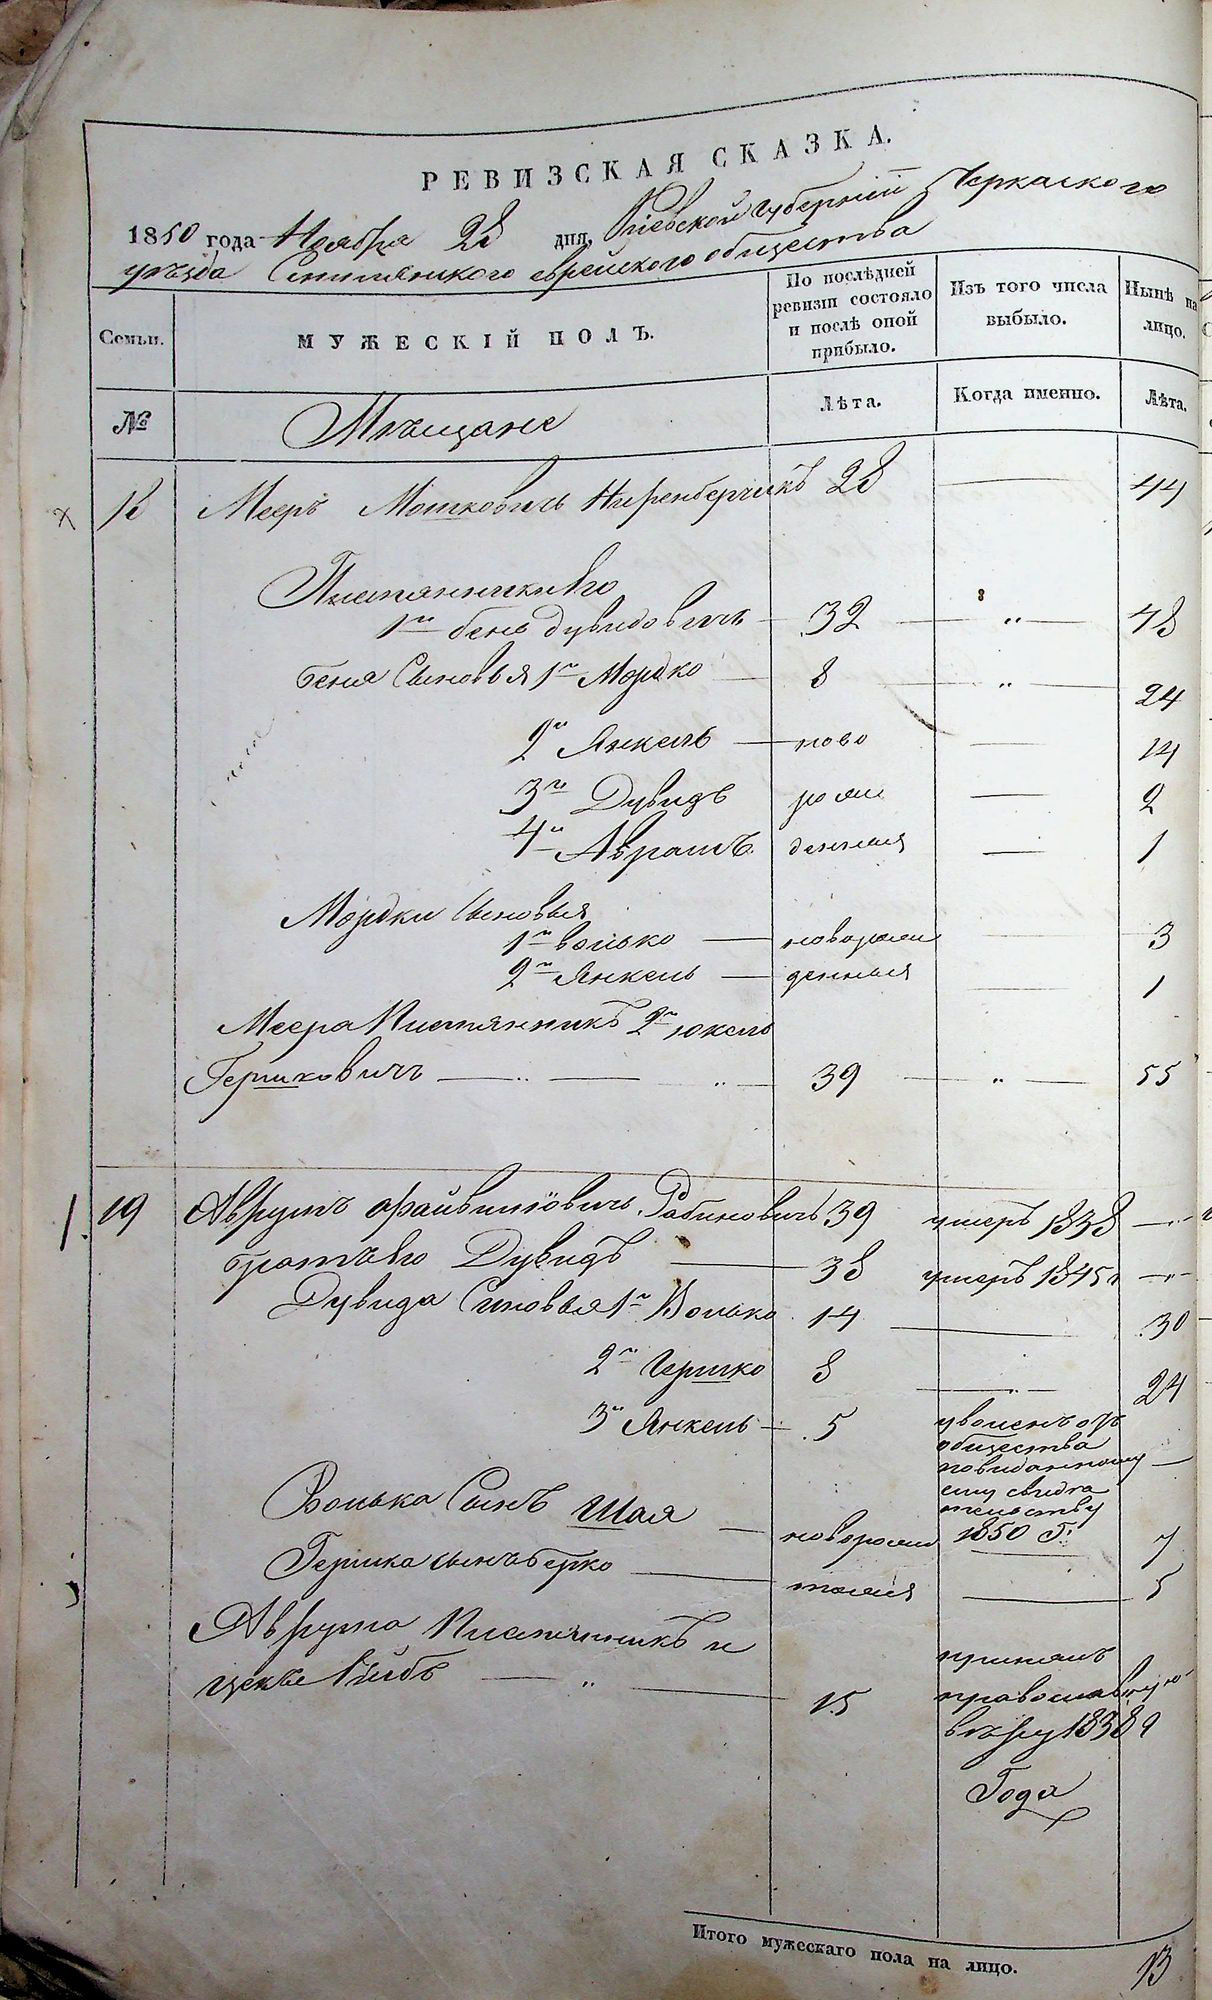 РЕВИЗСКАЯ СКАЗКА.
1850 года Ноября 28 дня, Кіевской губерніи Черкаского
уѣзда Смѣлянского еврейского общества
Семьи.
МУЖЕСКІЙ ПОЛЪ.
По послѣдней
ревизіи состояло
и послѣ оной
прибыло.
Изъ того числа
выбыло.
Нынѣ на
лицо.
№
Мѣщане
Лѣта.
Когда именно.
Лѣта.
18 Мееръ Мошковичъ Ниренберчикъ 28 — 44
Племянники Его
1й бень Дувидовичъ — 32 — „ — 48
беня Сыновья 1й Мордко — 8 — „ — 24
2й Янкель — ново — 14
3й Дувидъ рож — 2
4й Аврамъ денныя — 1
Мордки Сыновья
1й волько — новорож — 3
2й Янкель — денныя — 1
Меера Племянникъ 2й юкель
Гершковичъ — „ — „ — 39 — „ — 55
19 Аврумъ Файвишовичъ Рабиновичъ 39 умеръ 1838 — „ —
братъ Его Дувидъ — 38 умеръ 1845 г — „ —
Дувида Сыновья 1й Волько 14 — 30
2й Гершко 8 — „ — 24
3й Янкель — 5 уволенъ отъ
общества
повиданному —
ему свиде
тельству
1850 Г.
Волька Сынъ Шая — новорож — 7
Гершка сынъ берко — 5
Аврума Племянникъ и
Лейбъ — „ — 15
принялъ
православную
вѣру 1838
Года
Итого мужескаго пола на лицо. 13